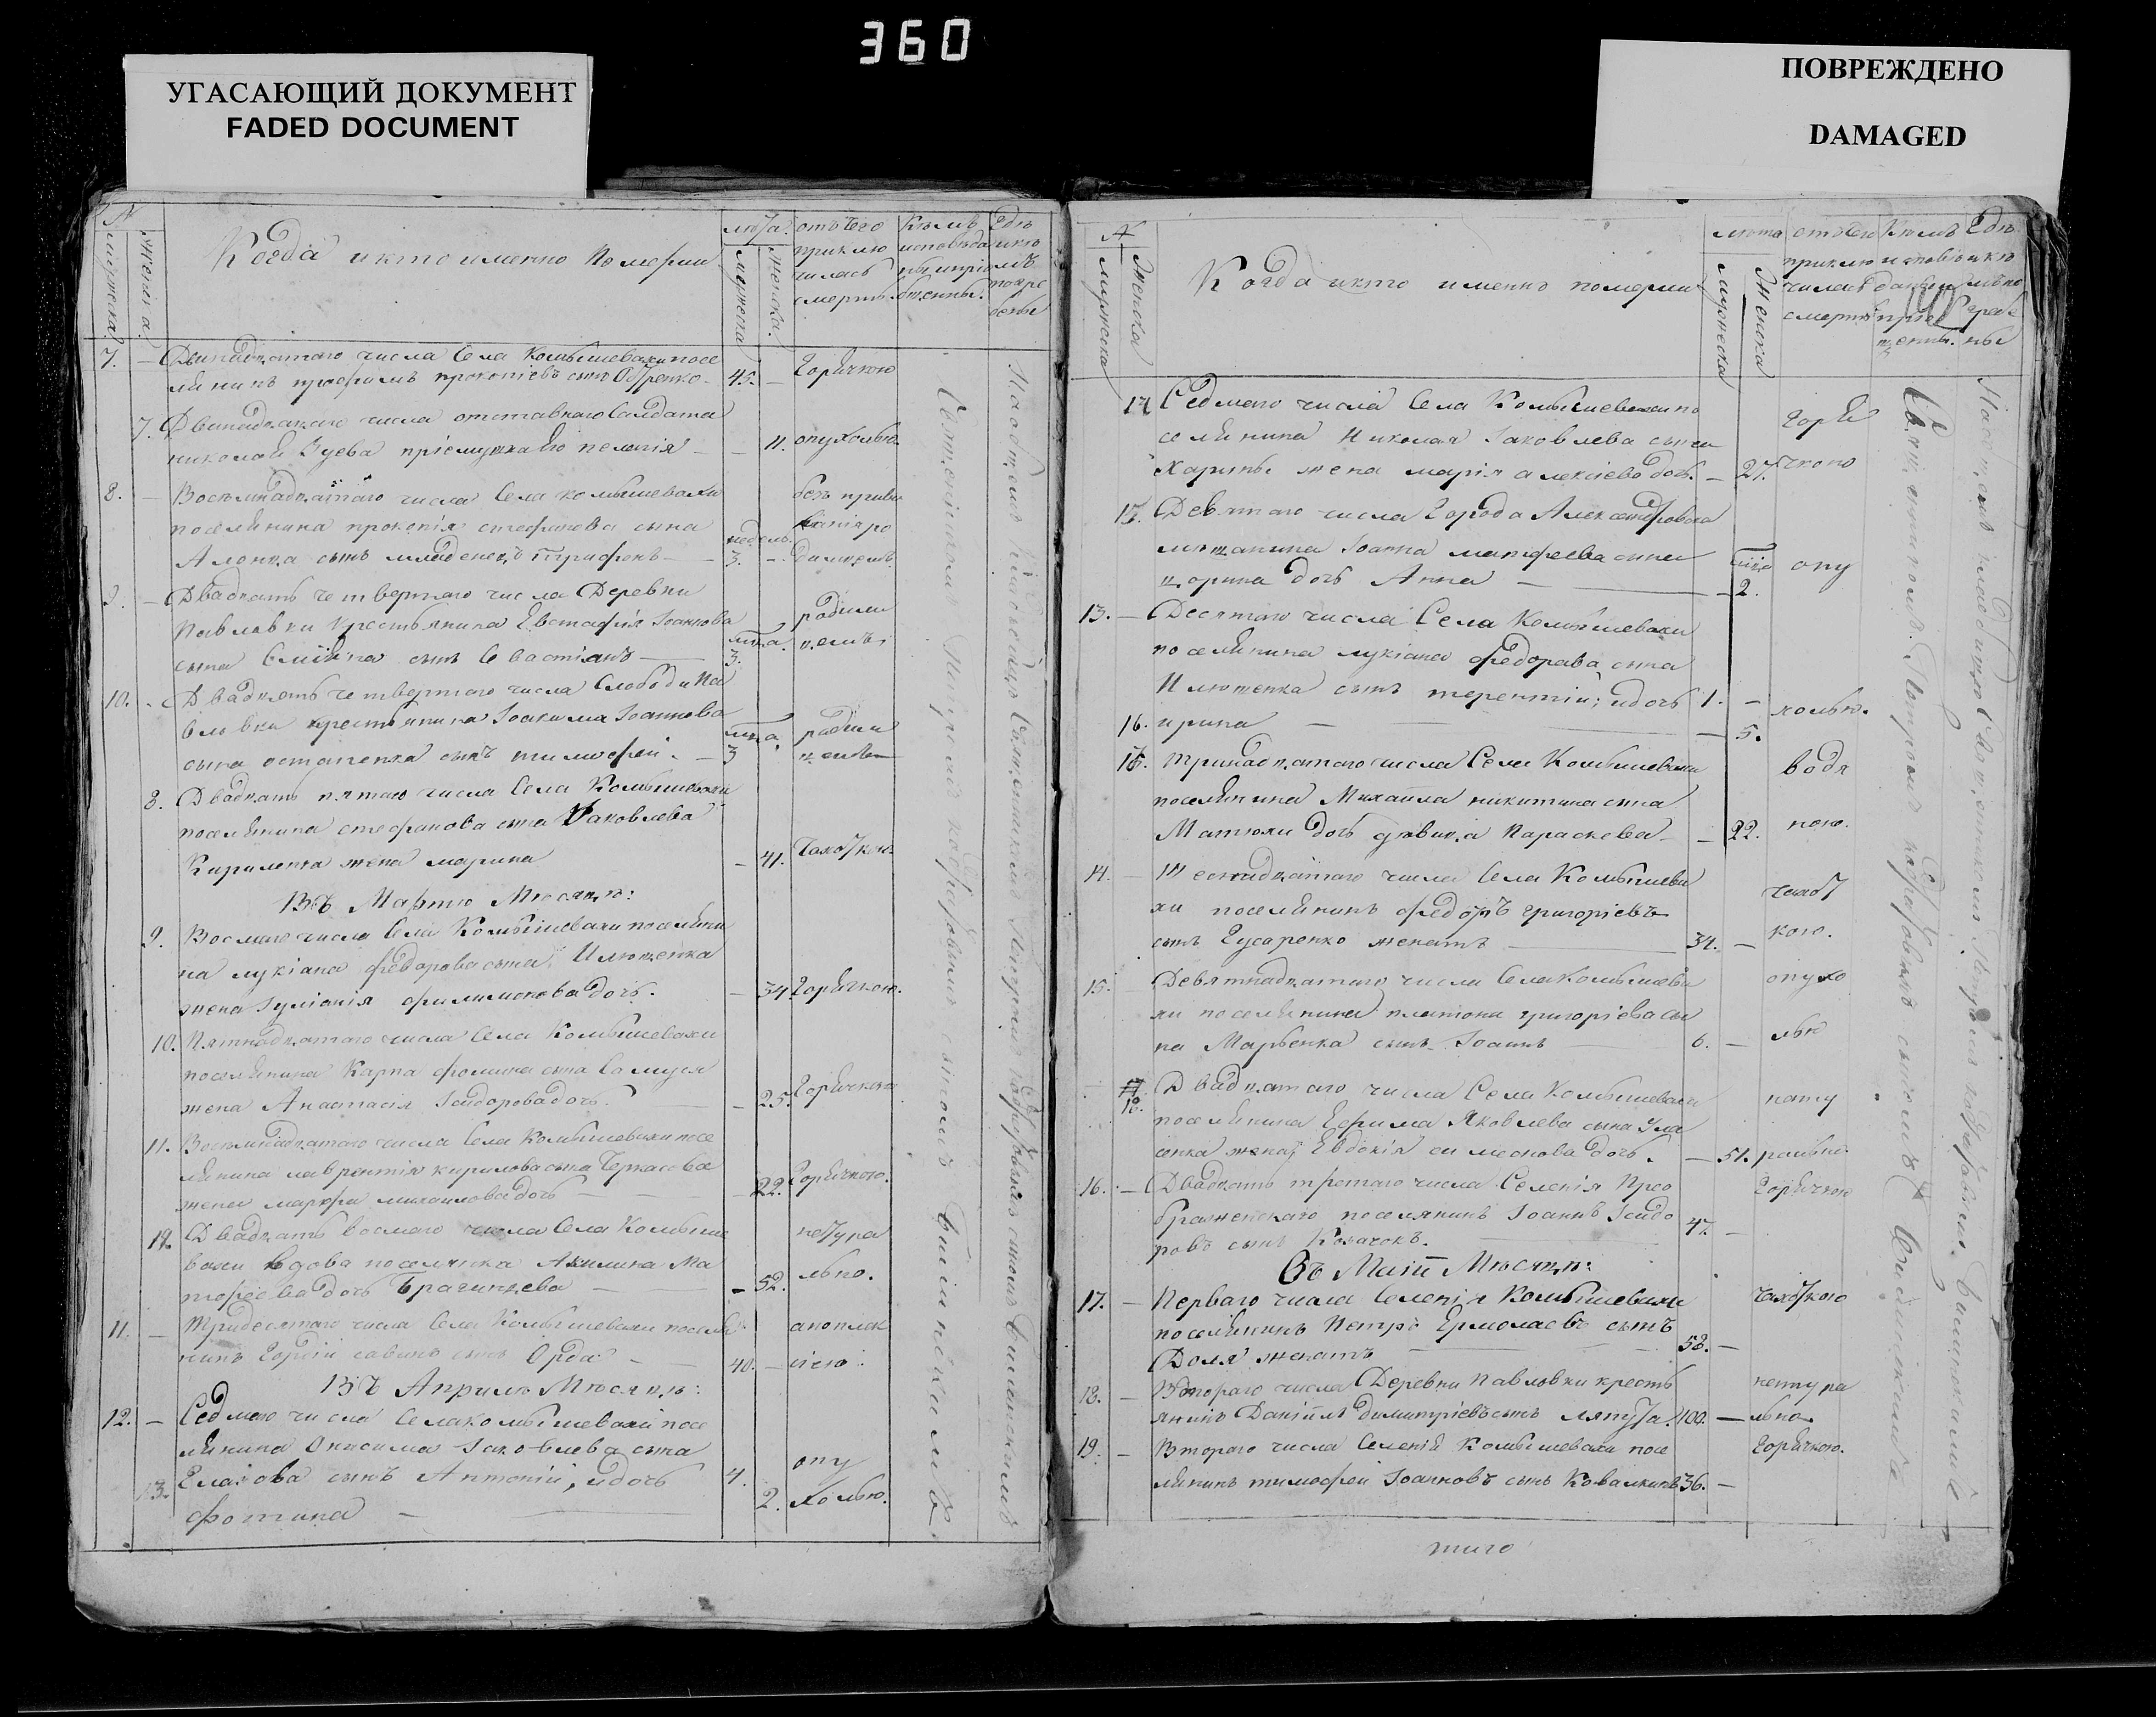 360
УГАСАЮЩИЙ ДОКУМЕНТ
FADED DOCUMENT
ПОВРЕЖДЕНО
DAMAGED
N
мужеска
женска
Когда и кто именно Померли
лѣта
мужеска
женска
отъ чего
приклю
чилась
смерть
Кѣмъ
исповѣда
ны и прiо
бщены.
Гдѣ
и кѣ
мъ
погре
бены
7. — Двенадцатаго числа Села Комышевахи посе
лянинъ прокопiевъ сынъ — 45. — Горячкою
7. Двенадцатаго числа отставнаго Солдата
николай Зуева прiемушка его пелагiя — — 11. опухолью
8. — Восемнадцатаго числа Села комышевахи
поселянина прокопiя стефанова сына
сынъ младенецъ Трифонъ — недель 3. —
9. — Двадцать четвертаго числа Деревни
Павловки крестьянина Евстафiя Iоаннова
сына сынъ Севастiянъ — лѣта. 3. родим
цемъ
10. — Двадцать четвертаго числа Слободи Па
вловки крестьянина Iоакима Iоаннова
сына остапенка сынъ тимофей. — лѣта 3 родим
цемъ
8. Двадцать пятаго числа Села Комышевахи
поселянина стефанова сына Яковлева
Кириленка жена марина — 41. Чахоткою
Въ Мартѣ Мѣсяцѣ:
9. Восмаго числа Села Комышевахи поселяни
на лукiана федорова сына Илющенка
жена Iулiанiя филимонова дочь. — 34 Горячкою.
10. Пятнадцатаго числа Села Комышевахи
поселянина Карпа фомина сына Самусяя
жена Анастасiя Iсидорова дочь. — 25. Горячкою
11. Восемнадцатаго числа Села Комышевахи посе
лянина лаврентiя кирилова сына Черкасова
жена марфа михаилова дочь — — 22. Горячкою.
12. Двадцать восмаго числа Села Комыше
вахи вдова поселянка Акилина Ма
тфеева дочь Брагинцева — — 52. натура
льно.
11. — Тридесятаго числа Села Комышевахи поселя
нинъ савинъ сынъ Орда — 40. — апоплек
сiею.
Въ Априлѣ Мѣсяцѣ:
12. — Седмаго числа Села комышевахи посе
лянина Онисима Iаковлева сына
13. сынъ Антонiй, и дочь 4. опу
фотина — 2. холью.
N
мужеска
женска
Когда и кто именно померли
лѣта
мужеска
женска
отъ чего
приклю
чилась
смерть
Кѣмъ
исповѣ
даны и
прiоб
щены.
Гдѣ
и кѣ
мъ по
гребе
ны
14 Седмаго числа Села Комышевахи по
селянина Николая Iаковлева сына
Харины жена марiя алексiева дочь. — 27. горя
чкою
15. Девятаго числа Города Александровска
мѣщанина Iоанна матфеева сына
дочь Анна — лѣта 2. опу
13. — Десятаго числа Села Комышевахи
поселянина лукiана федорова сына
Илющенка сынъ терентiй, и дочь 1. —
16. ирина — — 5. холью.
Тринадцатаго числа Села Комышевахи
поселянина Михаила никитина сына
Матюхи дочь девица Параскева — 22. водя
ною.
14. — Шестнадцатаго числа Села Комышева
хи поселянинъ федоръ григорiевъ
сынъ Гусаренко женатъ — 34. — чахот
кою.
15. — Девятнадцатаго числа Села Комышева
хи поселянина платона григорiева сы
на Марченка сынъ Iоаннъ — 6. — опухо
лью
18. Двадцатаго числа Села Комышевахи
поселянина Ефима Яковлева сына
жена Евдокiя симеонова дочь. — 51. нату
рально
16. — Двадцать третаго числа Селенiя Прео
браженскаго поселянинъ Iоаннъ Iсидо
ровъ сынъ Козачокъ. 47. — Горячкою
Въ Маiи Мѣсяцѣ:
17. — Перваго числа Селенiя Комышевахи
поселянинъ Петръ Ермолаевъ сынъ
Доля женатъ — 58. — Чахоткою
18. — Втораго числа Деревни Павловки кресть
янинъ Данiилъ димитрiевъ сынъ ляпута. 100. — натура
льно.
19. — Втораго числа Селенiй Комышевахи посе
лянинъ тимофей Iоанновъ сынъ Ковалкинъ 36. — Горячкою.